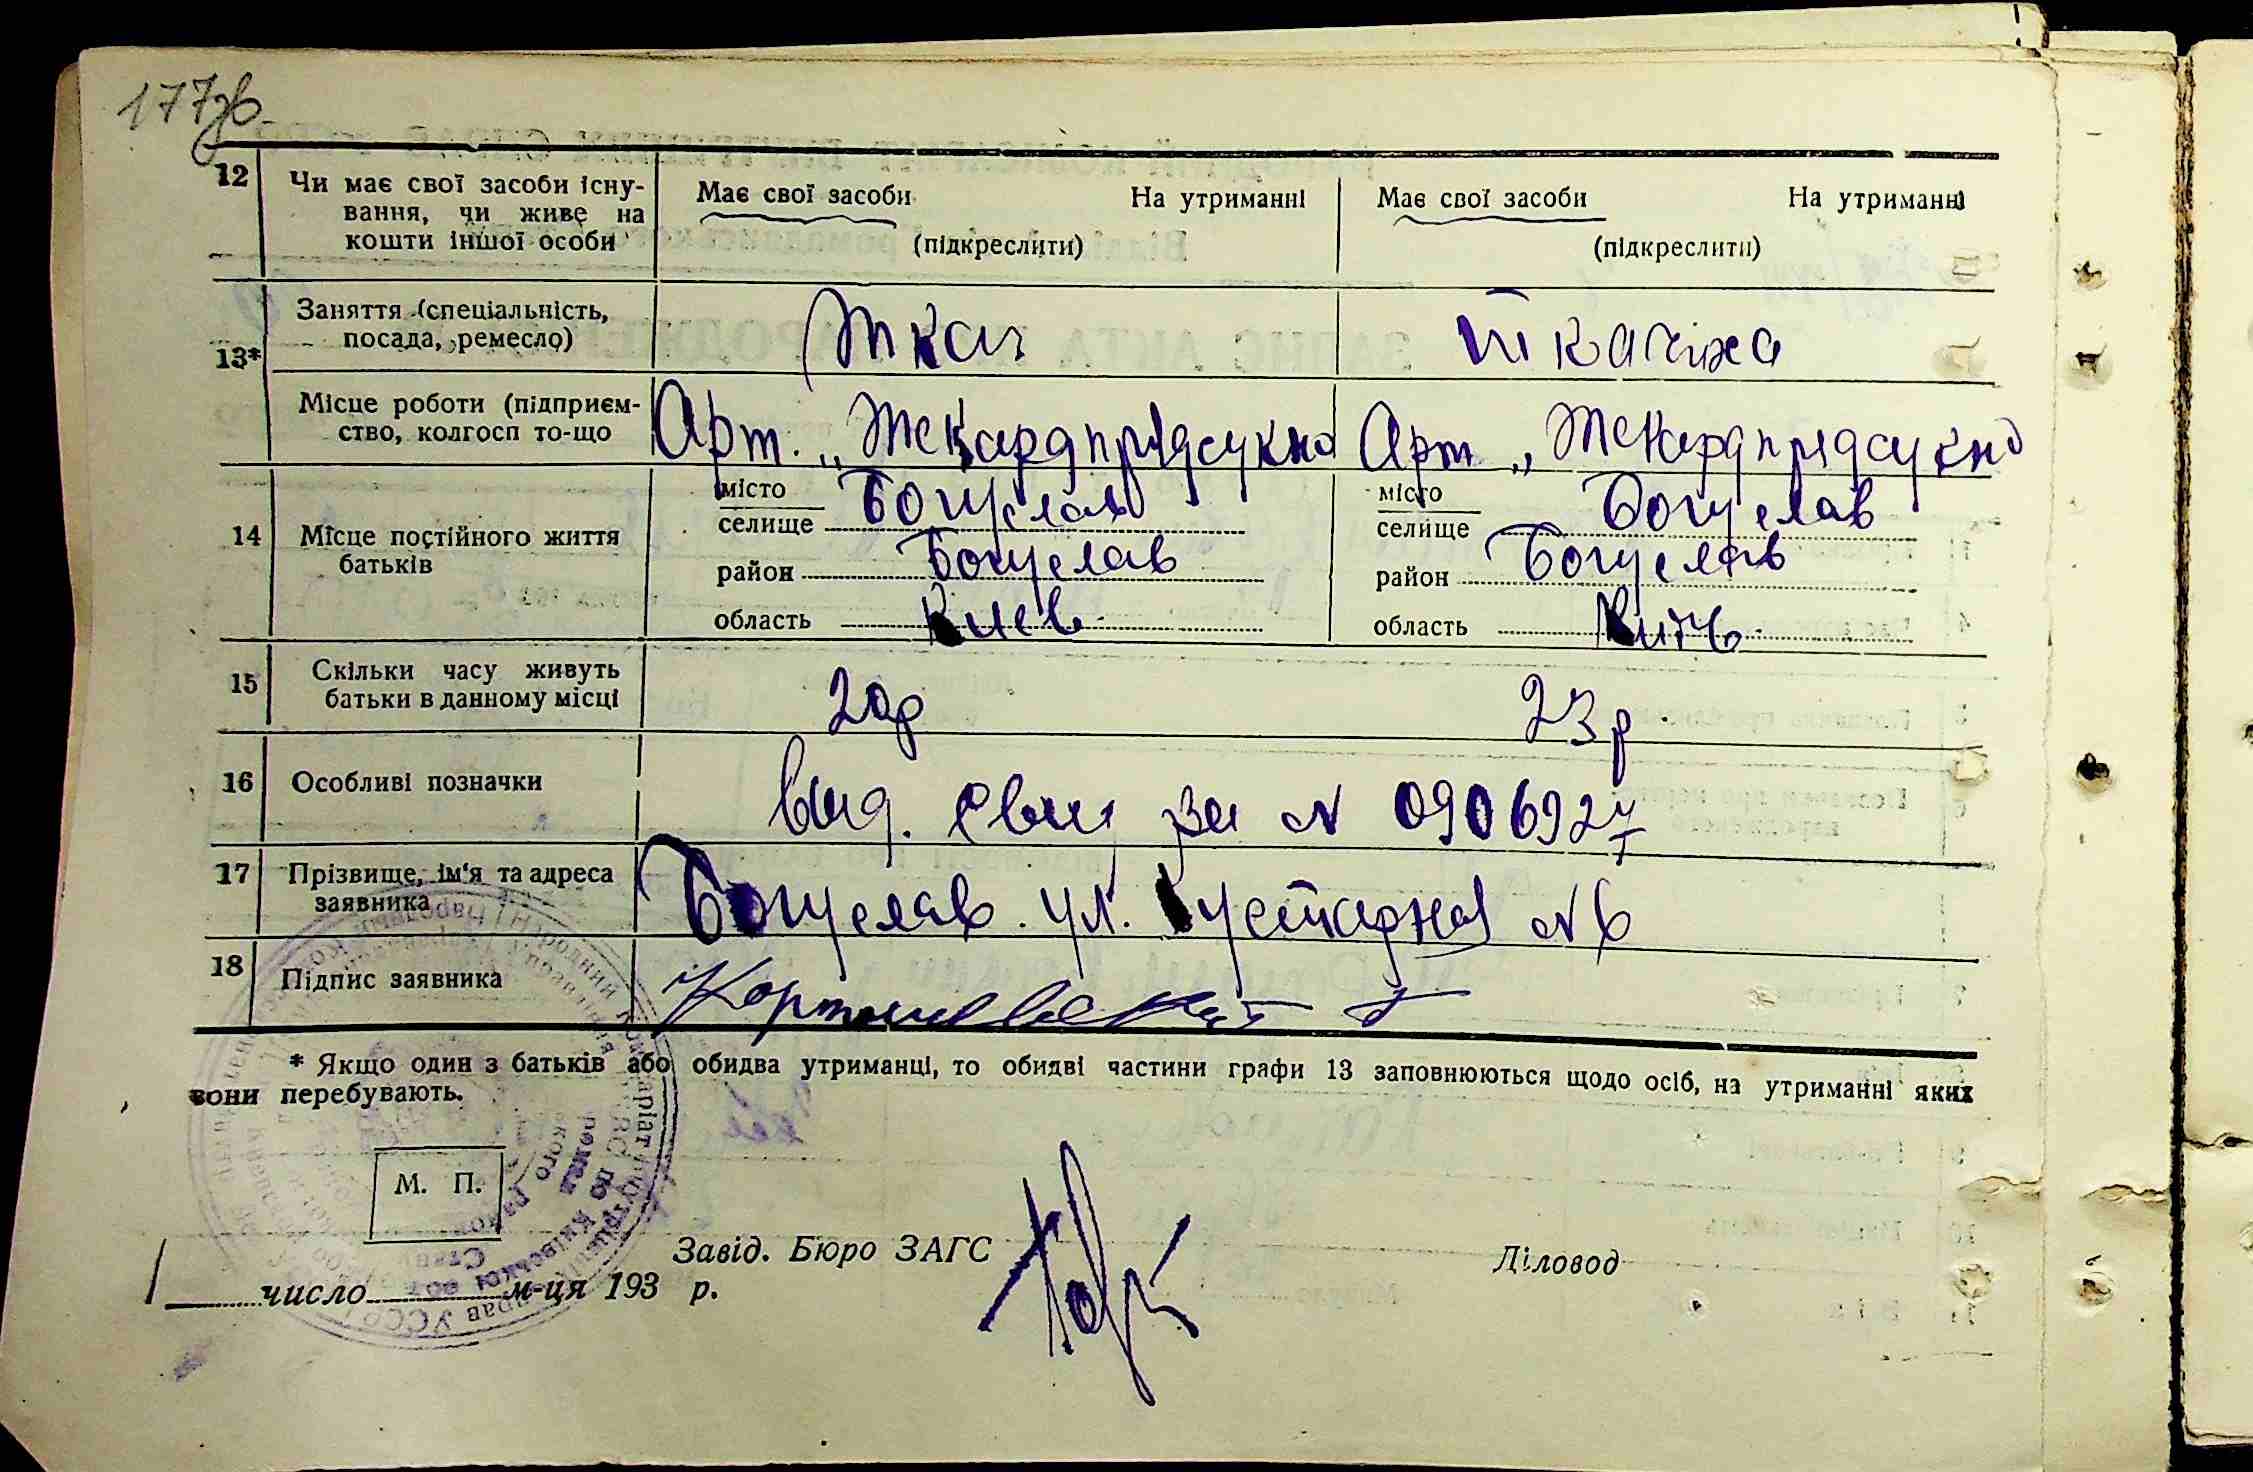 177зв.
12 Чи має свої засоби існу- Має свої засоби На утриманні Має свої засоби На утриманні
вання, чи живе на
кошти іншої особи (підкреслити) (підкреслити)
Заняття (спеціальність, Ткач Ткачиха
13* посада, ремесло)
Місце роботи (підприєм- Арт.
ство, колгосп то-що Арт.
місто Богуслав місто Богуслав
селище селище
14 Місце постійного життя
батьків район Богуслав район Богуслав
область Киев. область
15 Скільки часу живуть 20р 23р.
батьки в данному місці
16 Особливі позначки вид. за N
17 Прізвище, ім'я та адреса
заявника Богуслав. ул. Кустарная N 6
18 Підпис заявника
* Якщо один з батьків або обидва утриманці, то обидві частини графи 13 заповнюються щодо осіб, на утриманні яких
вони перебувають.
М. П.
Завід. Бюро ЗАГС Діловод
число м-ця 193 р.